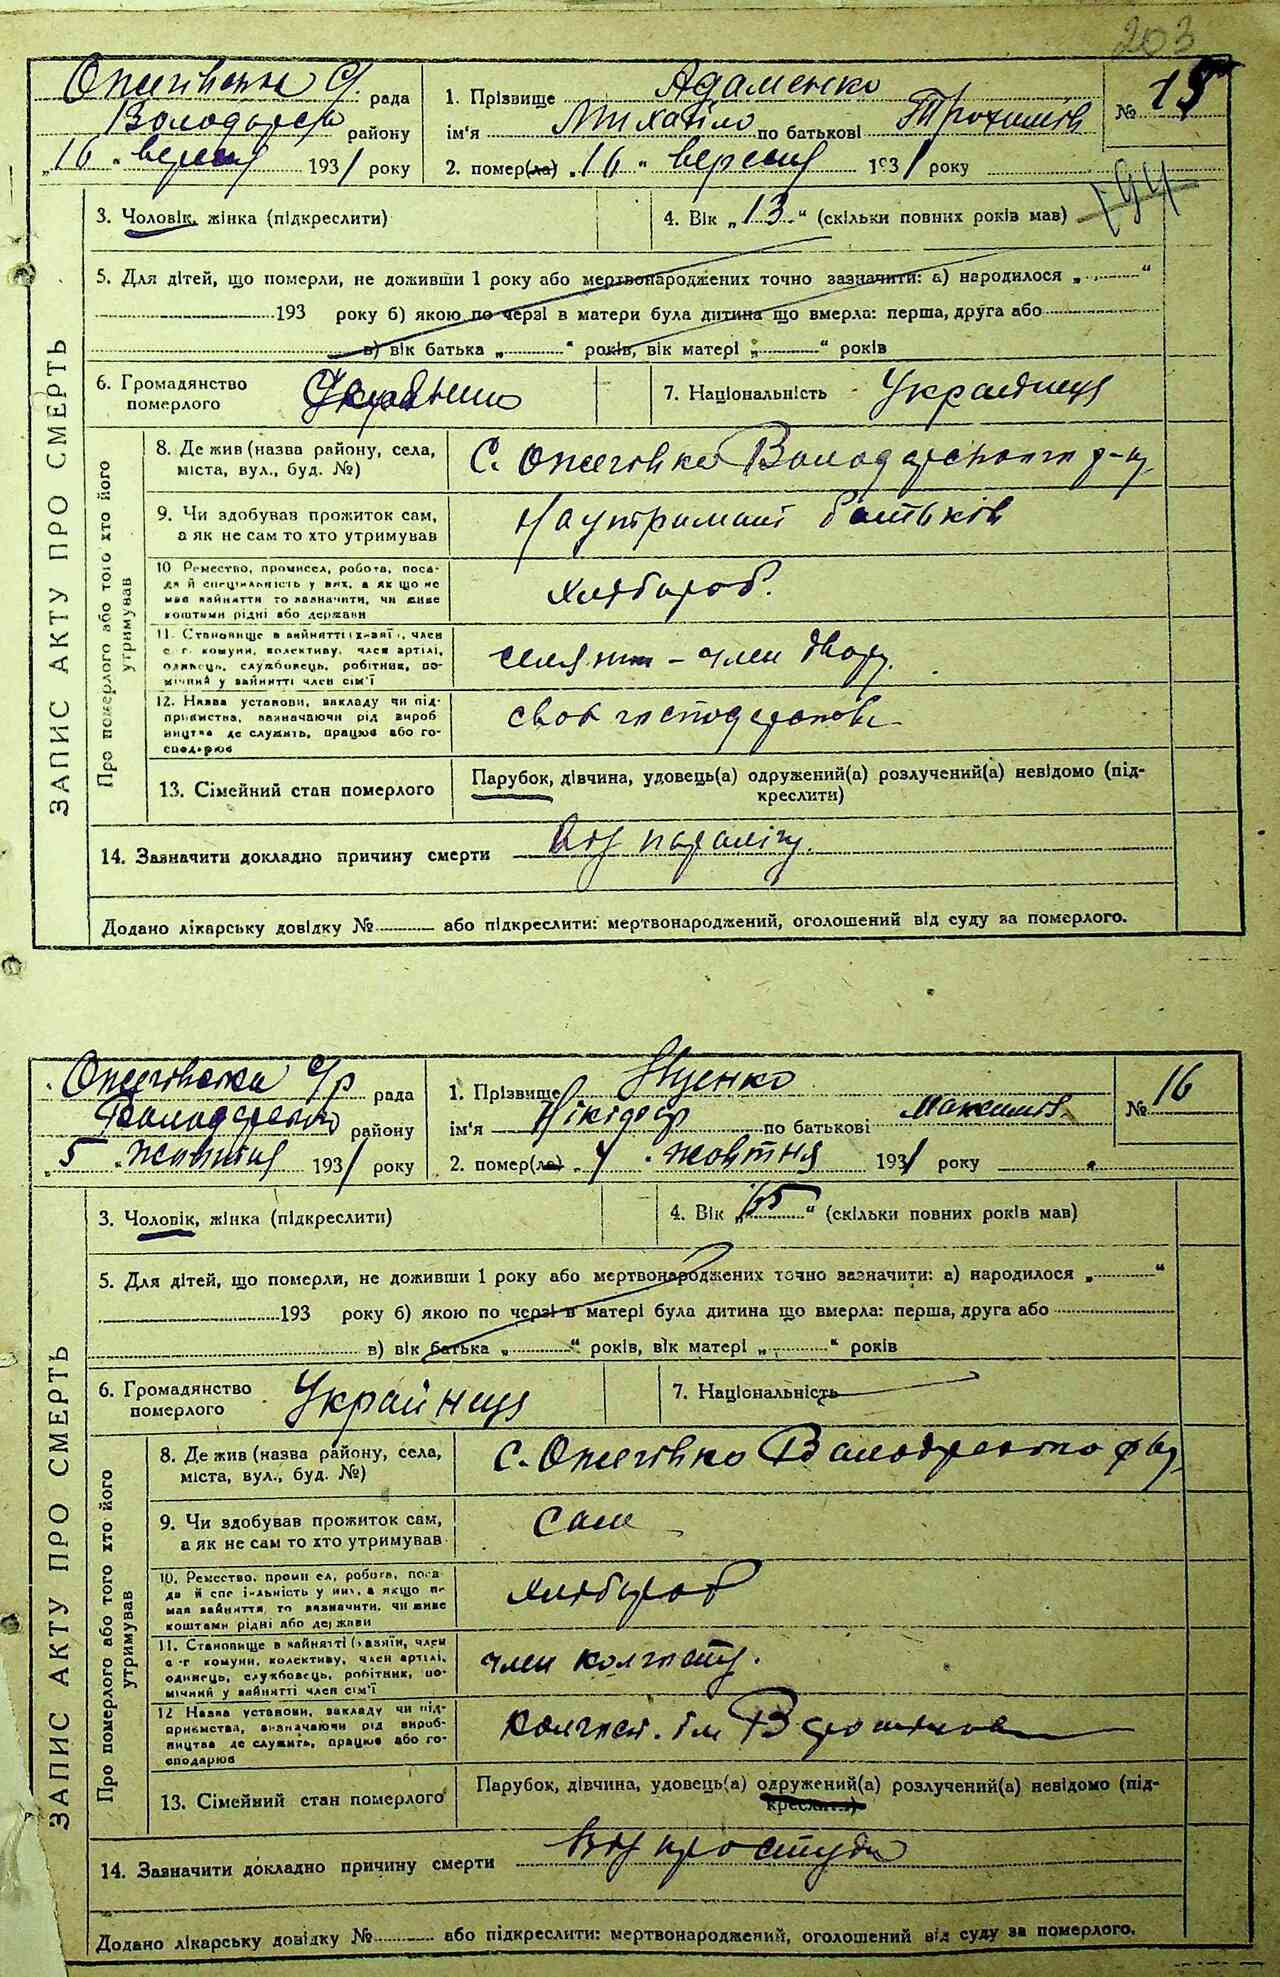 203
Ожегівська С/. рада
Володарсько району
„16 „ вересня 1931 року
1. Прізвище Адаменко
ім'я Михайло по батькові Трохимів
2. помер(ла) „16 „ вересня 1931 року
№ 15
194
ЗАПИС АКТУ ПРО СМЕРТЬ
3. Чоловік, жінка (підкреслити)
4. Вік „13“ (скільки повних років мав)
5. Для дітей, що померли, не доживши 1 року або мертвонароджених точно зазначити: а) народилося „ “
193 року б) якою по черзі в матери була дитина що вмерла: перша, друга або
в) вік батька „ “ років, вік матері „ “ років
6. Громадянство
померлого
7. Національність Украйнця
Про померлого або того хто його
утримував
8. Де жив (назва району, села,
міста, вул., буд. №)
С. Ожегівка Володарського р-ну
9. Чи здобував прожиток сам,
а як не сам то хто утримував
На утриманні батьків
10 Ремество, промисел, робота, поса-
да й спеціяльність у них, а як що не
мав зайняття то зазначити, чи живе
коштами рідні або держави
Хлібороб.
11. Становище в зайнятті (хазяї , член
с г. комуни, колективу, член артілі,
одинець, службовець, робітник, по-
мічний у зайнятті член сім'ї
селянин - член двору.
12. Назва установи, закладу чи під-
приємства, зазначаючи рід вироб
ництва де служить, працює або го-
сподарює
своє господарство
13. Сімейний стан померлого
Парубок, дівчина, удовець(а) одружений(а) розлучений(а) невідомо (під-
креслити)
14. Зазначити докладно причину смерти Від параліч.
Додано лікарську довідку № або підкреслити: мертвонароджений, оголошений від суду за померлого.
Ожегівська С/р рада
Володарсько району
„5 „ жовтня 1931 року
1. Прізвище Яценко
ім'я Нікіфор по батькові Максимів.
2. помер(ла) „4 „ жовтня 1931 року
№ 16
ЗАПИС АКТУ ПРО СМЕРТЬ
3. Чоловік, жінка (підкреслити)
4. Вік „65“ (скільки повних років мав)
5. Для дітей, що померли, не доживши 1 року або мертвонароджених точно зазначити: а) народилося „ “
193 року б) якою по черзі в матері була дитина що вмерла: перша, друга або
в) вік батька „ “ років, вік матері „ “ років
6. Громадянство
померлого Украйнця
7. Національність
Про померлого або того хто його
утримував
8. Де жив (назва району, села,
міста, вул., буд. №)
С. Ожегівка Володарського р-ну
9. Чи здобував прожиток сам,
а як не сам то хто утримував
Сам
10. Ремество, проми ел, робота, поса-
да й спе іяльність у них, а якщо не
мав зайняття, то зазначити, чи живе
коштами рідні або держави
Хлібороб
11. Становище в зайнятті (хазяїн, член
с -г комуни, колективу, член артілі,
одинець, службовець, робітник, по-
мічний у зайнятті член сім'ї
член колгоспу.
12 Назва установи, закладу чи під-
приємства, зазначаючи рід вироб-
ництва де служить, працює або го-
сподарює
Колгосп. ім Ворошилова
13. Сімейний стан померлого
Парубок, дівчина, удовець(а) одружений(а) розлучений(а) невідомо (під-
креслити)
14. Зазначити докладно причину смерти Від простуди
Додано лікарську довідку № або підкреслити: мертвонароджений, оголошений від суду за померлого.